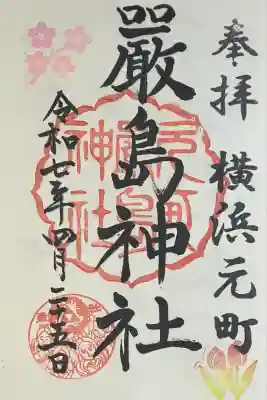 奉拝 横浜元町
嚴島神社
令和七年四月二十五日
神社